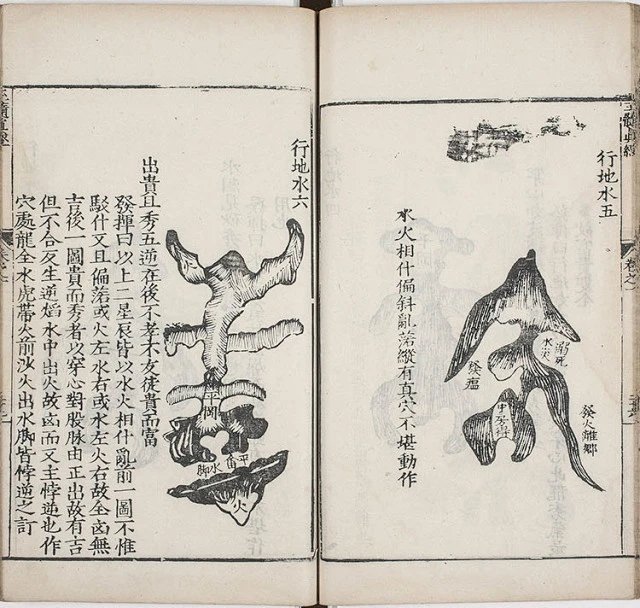 行地水五
水火相什偏斜亂落縱有真穴不堪動作
溺死
水尖
癸瘟
癸火離鄉
行地水六
平岡
平面
水脚
火
出貴且秀五逆在後不孝不友徒貴而富
發揮曰以上二星辰皆以水火相什亂前一圖不惟
駁什又且偏落或火左水右或水左火右故全凶無
吉後一圖貴而秀者以穿心對股脉由正出故有吉
但不合反生逆焰水中出火故凶而又主悖逆也作
穴處龍全水虎帶火前沙火出水脚皆悖逆之訂